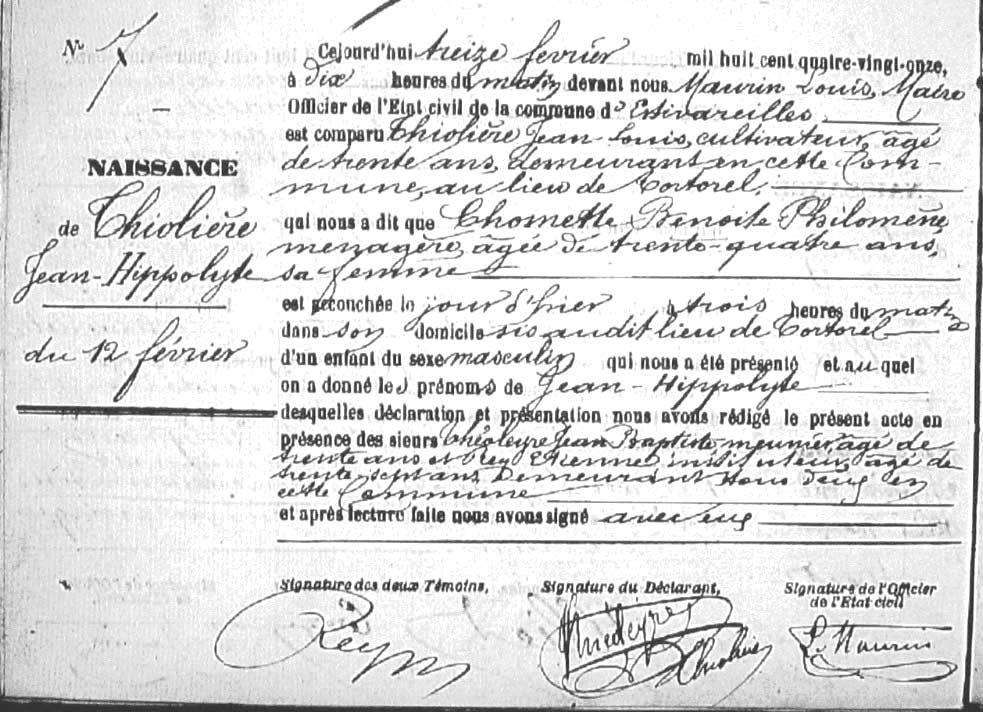 N° 7
NAISSANCE
de Thiolière
Jean-Hippolyte
du 12 février
Cejourd'hui treize fevrier mil huit cent quatre-vingt-onze,
à dix heures du matin devant nous Maurin Louis, Maire
Officier de l'Etat civil de la commune d'Estivareilles
est comparu Thiolière Jean-Louis, cultivateur, agé
de trente ans, demeurant en cette Com-
mune, au lieu de Tortorel,
qui nous a dit que Chomette Benoite Philomène
menagère, agée de trente-quatre ans,
sa femme
est accouchée le jour d'hier à trois heures du matin
dans son domicile sis audit lieu de Tortorel
d'un enfant du sexe masculin qui nous a été présenté et au quel
on a donné les prénoms de Jean-Hippolyte
desquelles déclaration et présentation nous avons rédigé le présent acte en
présence des sieurs Jean Baptiste meunier agé de
trente ans et Rey Etienne instituteur, agé de
trente sept ans Demeurant tous deux en
cette Commune
et après lecture faite nous avons signé avec eux
Signature des deux Témoins, Signature du Déclarant, Signature de l'Officier
de l'Etat civil
Rey
Thiolière
L. Maurin